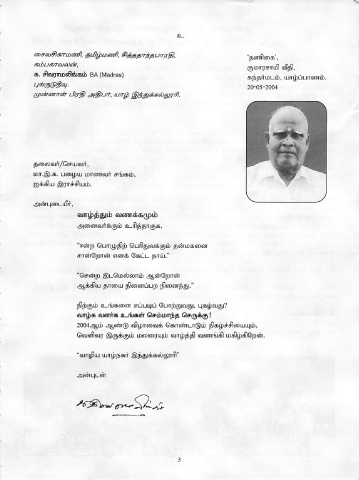 உ
சைவசிகாமணி, தமிழ்மணி, சித்தாந்தபாரதி,
கம்பகாவலன்,
க. சிவராமலிங்கம் BA (Madras)
புங்குடுதீவு
முன்னாள் பிரதி அதிபர், யாழ் இந்துக்கல்லூரி.
'தணிகை',
குமாரசாமி வீதி,
கந்தர்மடம், யாழ்ப்பாணம்.
20-05-2004
தலைவர்/செயலர்,
மா.இ.க. பழைய மாணவர் சங்கம்,
ஐக்கிய இராச்சியம்.
அன்புடையீர்,
வாழ்த்தும் வணக்கமும்
அனைவர்க்கும் உரித்தாகுக.
"ஈன்ற பொழுதிற் பெரிதுவக்கும் தன்மகனை
சான்றோன் எனக் கேட்ட தாய்."
"சென்ற இடமெல்லாம் ஆன்றோன்
ஆக்கிய தாயை நினைப்பற நினைந்து."
நிற்கும் உங்களை எப்படிப் போற்றுவது, புகழ்வது?
வாழ்க வளர்க உங்கள் செம்மாந்த செருக்கு!
2004ஆம் ஆண்டு விழாவைக் கொண்டாடும் நிகழ்ச்சியையும்,
வெளிவர இருக்கும் மலரையும் வாழ்த்தி வணங்கி மகிழ்கிறேன்.
"வாழிய யாழ்நகர் இந்துக்கல்லூரி"
அன்புடன்
5